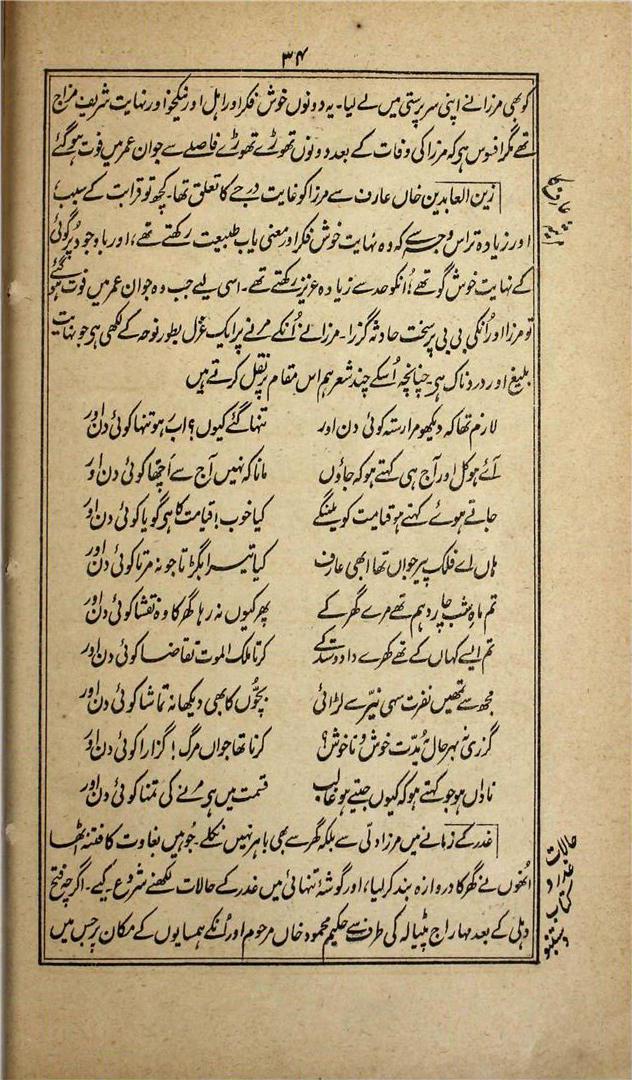 ۳۴
کو بھی مرزا نے اپنی سرپرستی میں لے لیا۔ یہ دونوں خوش فکر اور اہل اور نیکخو اور نہایت شریف مزاج
تھے مگر افسوس ہی کہ مرزا کی وفات کے بعد دونوں تھوڑے تھوڑے فاصلے سے جوان عمر میں فوت ہو گئے
زین العابدین خاں عارف سے مرزا کو غایت درجے کا تعلق تھا۔ کچھ تو قرابت کے سبب
اور زیادہ تر اس وجہ سے کہ وہ نہایت خوش فکر اور معنی یاب طبیعت رکھتے تھے، اور باوجود پُر گوئی
کے نہایت خوش گو تھے؛ اُنکو حد سے زیادہ عزیز رکھتے تھے۔ اسی لیے جب وہ جوان عمر میں فوت ہو گئے
تو مرزا اور اُنکی بی بی پر سخت حادثہ گزرا۔ مرزا نے اُنکے مرنے پر ایک غزل بطور نوحہ کے لکھی ہی جو نہایت
بلیغ اور دردناک ہی۔ چنانچہ اُسکے چند شعر ہم اس مقام پر نقل کرتے ہیں
لازم تھا کہ دیکھو مرا رستہ کوئی دن اور تنہا گئے کیوں؟ اب رہو تنہا کوئی دن اور
آئے ہو کل اور آج ہی کہتے ہو کہ جاؤں مانا کہ نہیں آج سے اچھا کوئی دن اور
جاتے ہوئے کہتے ہو قیامت کو ملینگے کیا خوب! قیامت کا ہی گویا کوئی دن اور
ہاں اے فلک پیر جواں تھا ابھی عارف کیا تیرا بگڑتا جو نہ مرتا کوئی دن اور
تم ماہِ شب چاردہم تھے مرے گھر کے پھر کیوں نہ رہا گھر کا وہ نقشا کوئی دن اور
تم ایسے کہاں کے تھے کھرے داد و ستد کے کرتا ملک الموت تقاضا کوئی دن اور
مجھ سے تمھیں نفرت سہی نیّر سے لڑائی بچّوں کا بھی دیکھا نہ تماشا کوئی دن اور
گزری نہ بہر حال یہ مُدّت خوش و ناخوش؟ کرنا تھا جواں مرگ! گزارا کوئی دن اور
ناداں ہو جو کہتے ہو کہ کیوں جیتے ہو غالب قسمت میں ہی مرنے کی تمنّا کوئی دن اور
غدر کے زمانے میں مرزا دلّی سے بلکہ گھر سے بھی باہر نہیں نکلے۔ جوہیں بغاوت کا فتنہ اُٹھا
اُنھوں نے گھر کا دروازہ بند کر لیا، اور گوشۂ تنہائی میں غدر کے حالات لکھنے شروع کیے۔ اگرچہ فتح
دہلی کے بعد مہاراج پٹیالہ کی طرف سے حکیم محمود خاں مرحوم اور اُنکے ہمسایوں کے مکان پر جس میں
حالات
غدر
کتاب
دستنبو